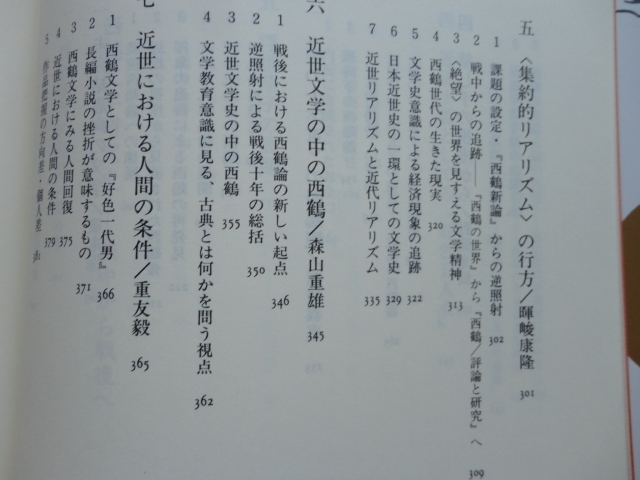 五 〈集約的リアリズム〉の行方／暉峻康隆 301
1 課題の設定・『西鶴新論』からの逆照射 302
2 戦中からの追跡——『西鶴の世界』から『西鶴／評論と研究』へ 309
3 〈絶望〉の世界を見すえる文学精神 313
4 西鶴世代の生きた現実 320
5 文学史意識による経済現象の追跡 322
6 日本近世史の一環としての文学史 329
7 近世リアリズムと近代リアリズム 335
六 近世文学の中の西鶴／森山重雄 345
1 戦後における西鶴論の新しい起点 346
2 逆照射による戦後十年の総括 350
3 近世文学史の中の西鶴 355
4 文学教育意識に見る、古典とは何かを問う視点 362
七 近世における人間の条件／重友毅 365
1 西鶴文学としての『好色一代男』 366
2 長編小説の挫折が意味するもの 371
3 西鶴文学にみる人間回復 375
4 近世における人間の条件 379
5 作品把握の方向差・個人差